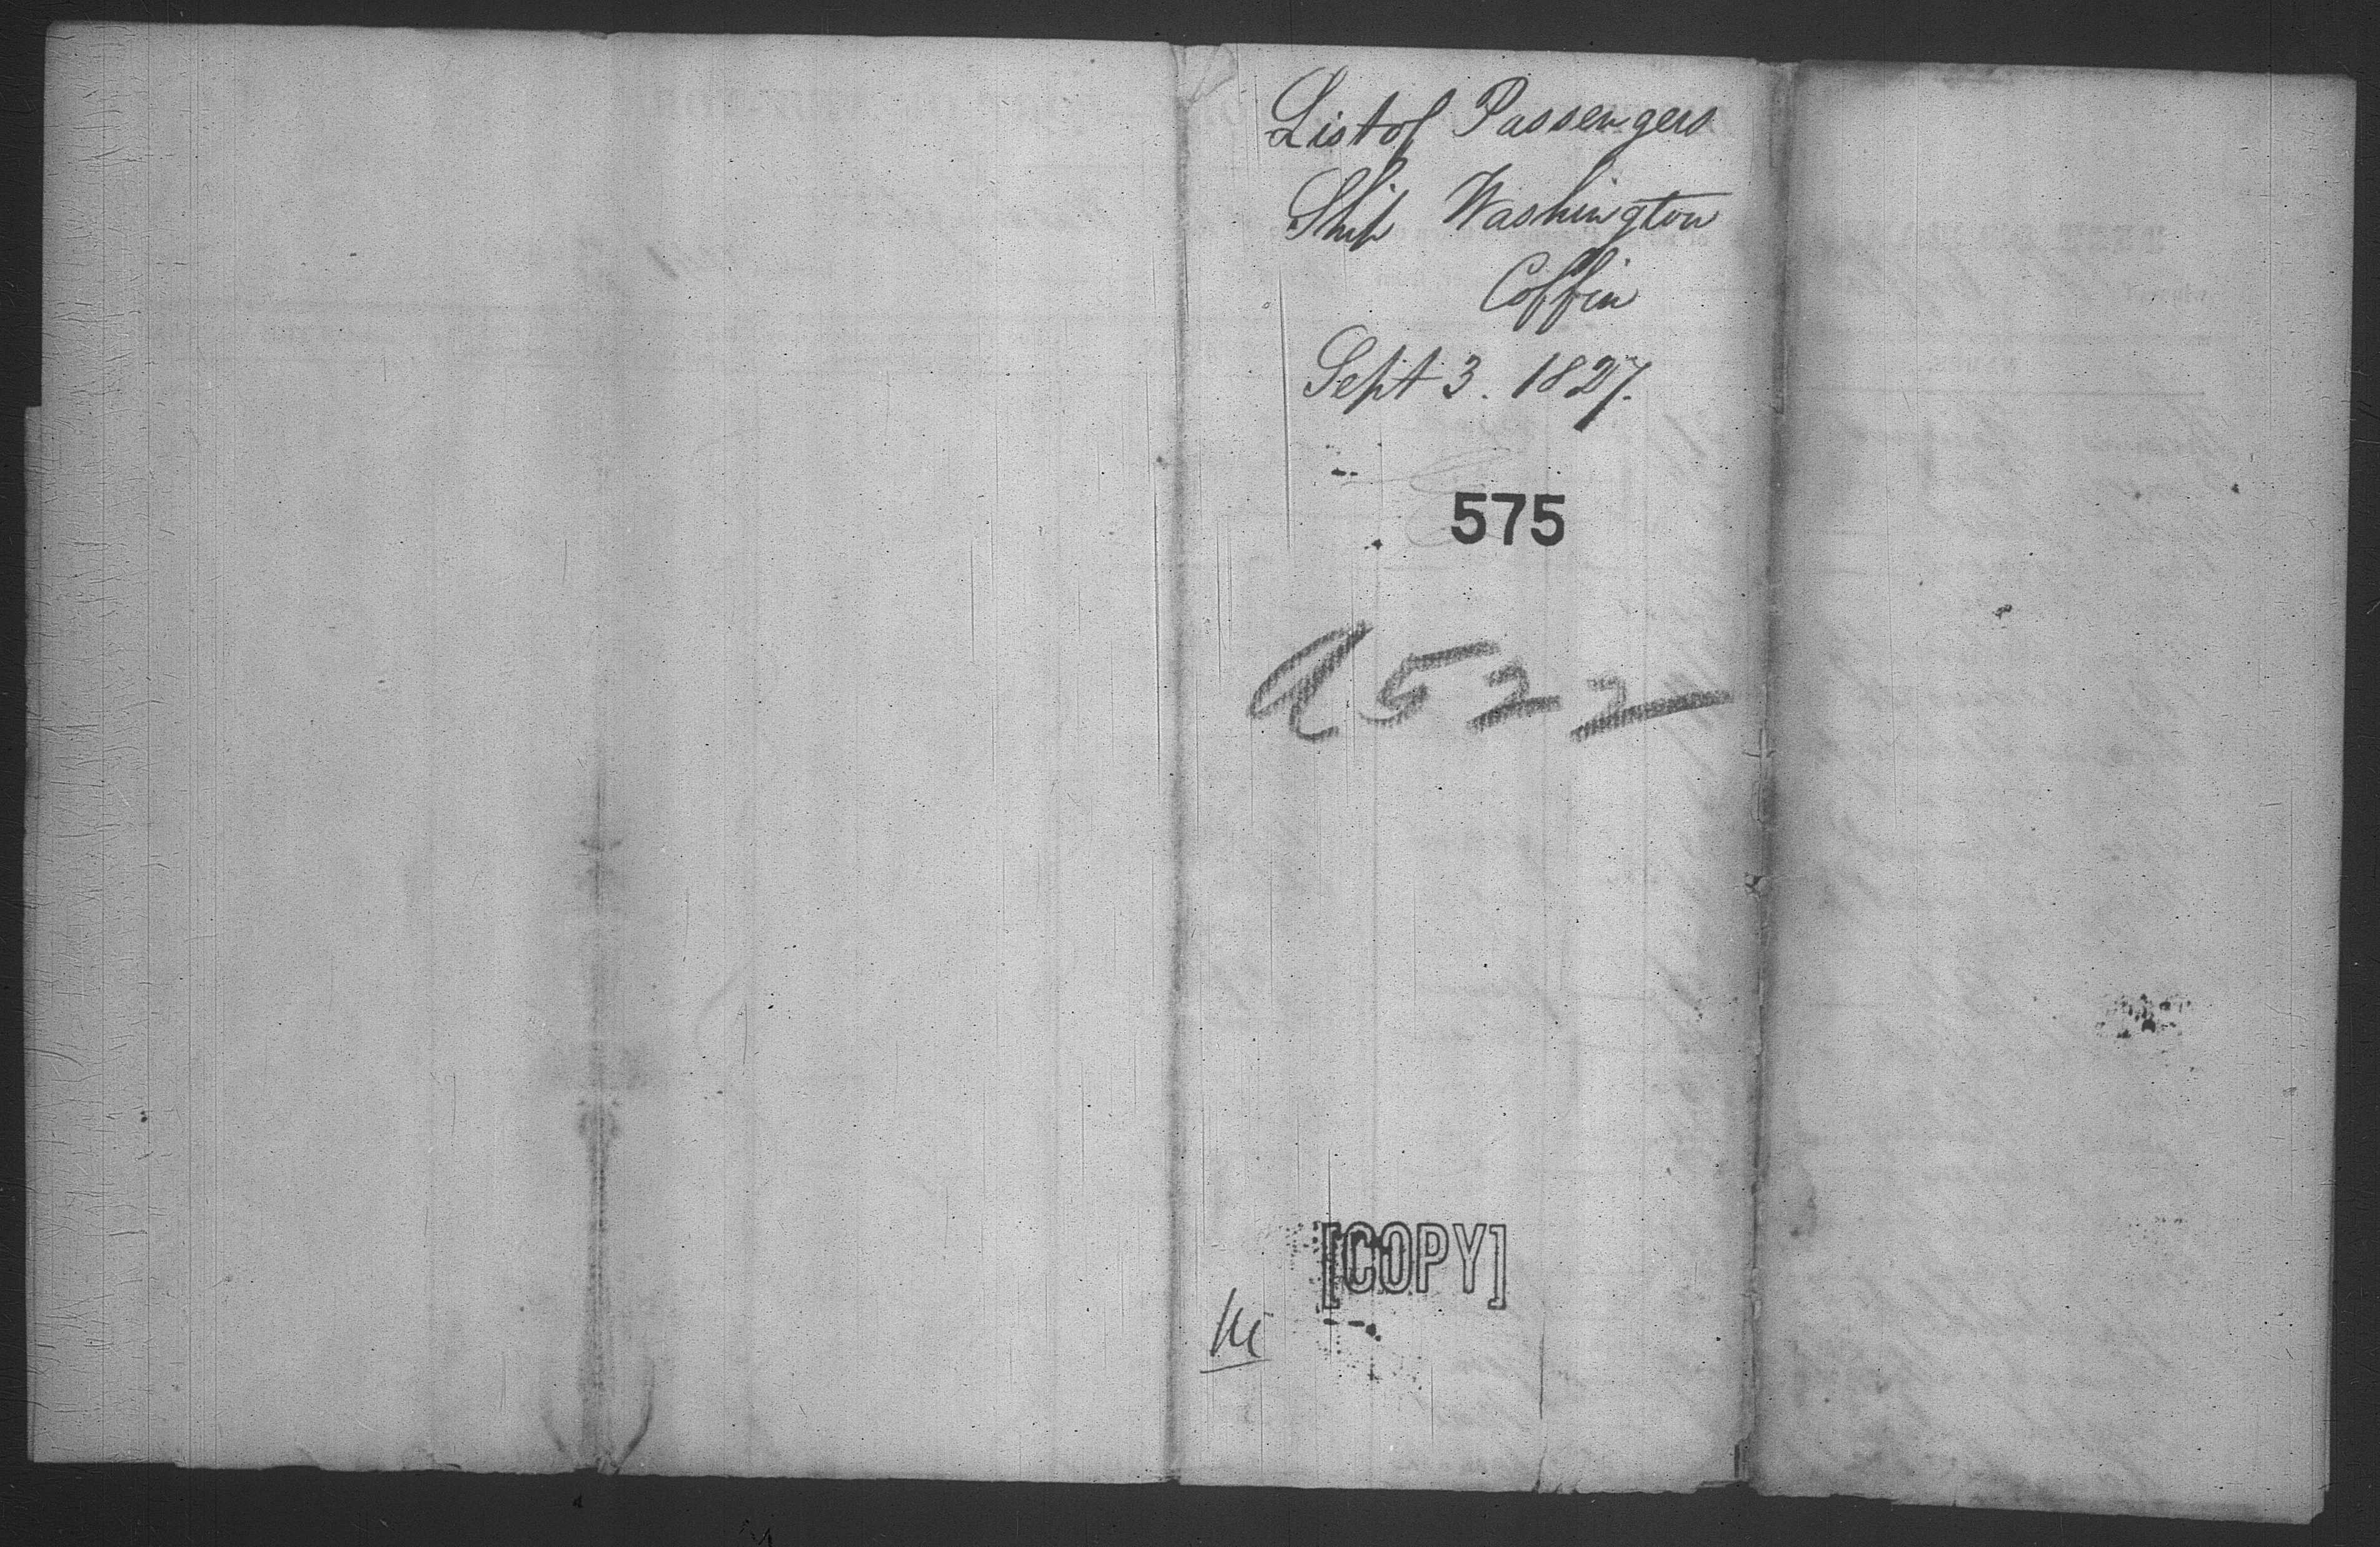 List of Passengers
Ship Washington
Coffin
Sept 3. 1827.
575
a522
[COPY]